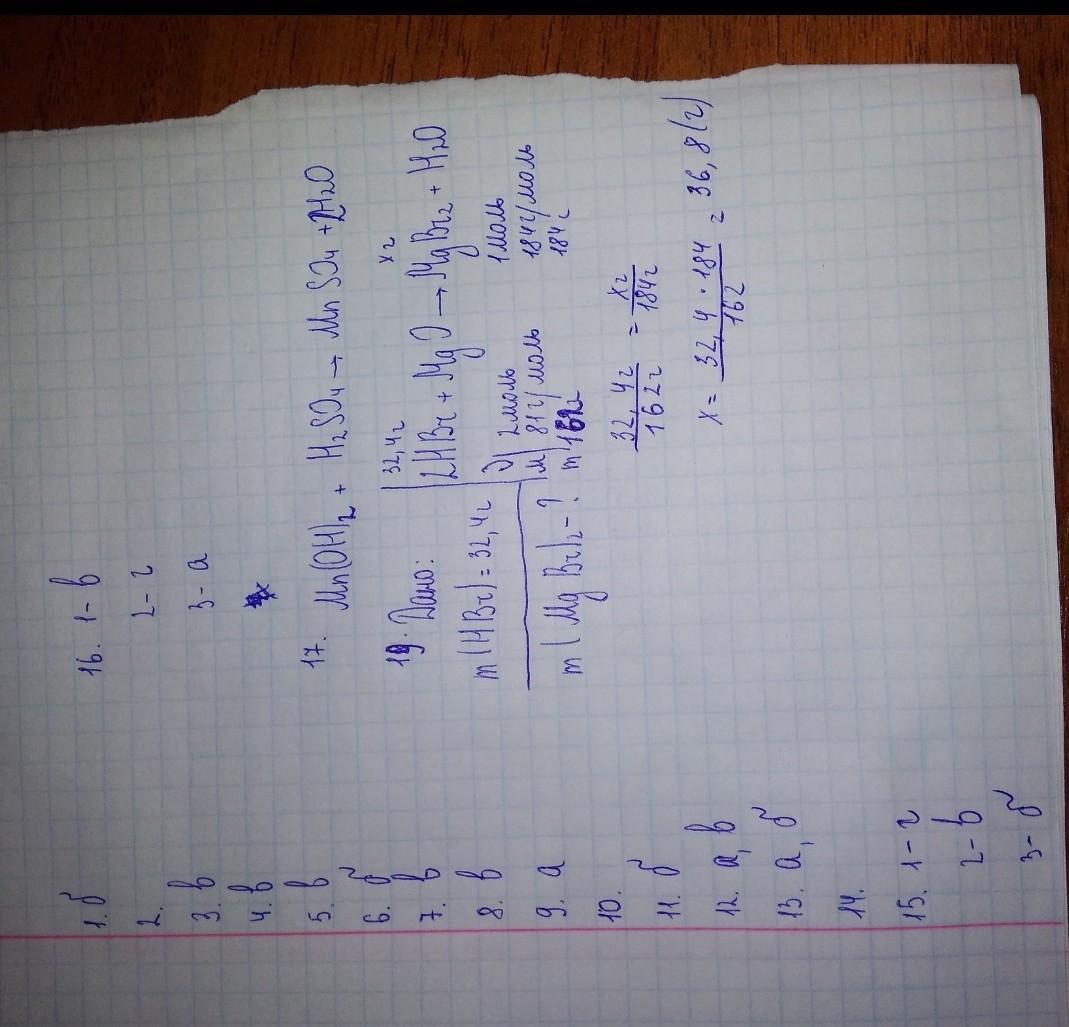 1. б
2.
3. в
4. в
5. в
6. б
7. в
8. в
9. а
10.
11. б
12. а, в
13. а, б
14.
15. 1 - г
2 - в
3 - б
16. 1 - в
2 - г
3 - а
17. Mn(OH)2 + H2SO4 → MnSO4 + 2H2O
19. Дано:
m(HBr) = 32,4г
m(MgBr)2 - ?
32,4г xг
2HBr + MgO → MgBr2 + H2O
ν 2моль 1моль
M 81г/моль 184г/моль
m 162г 184г
32,4г / 162г = xг / 184г
x = 32,4 · 184 / 162 = 36,8(г)